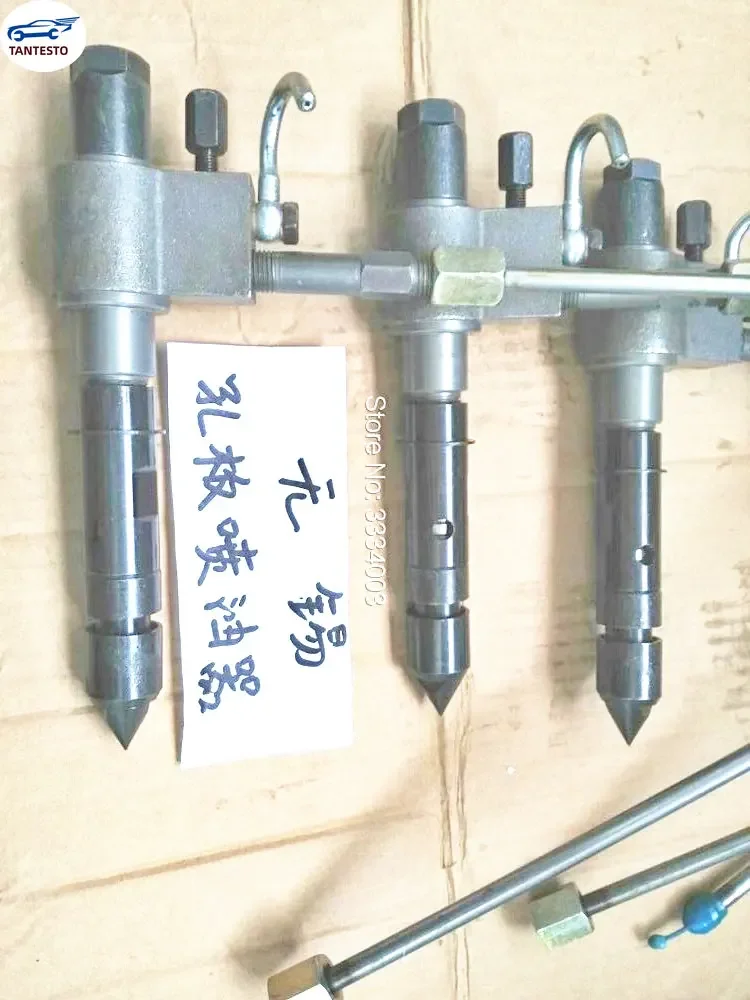 TANTESTO
无锡
孔板喷油器
Store No: 3334003